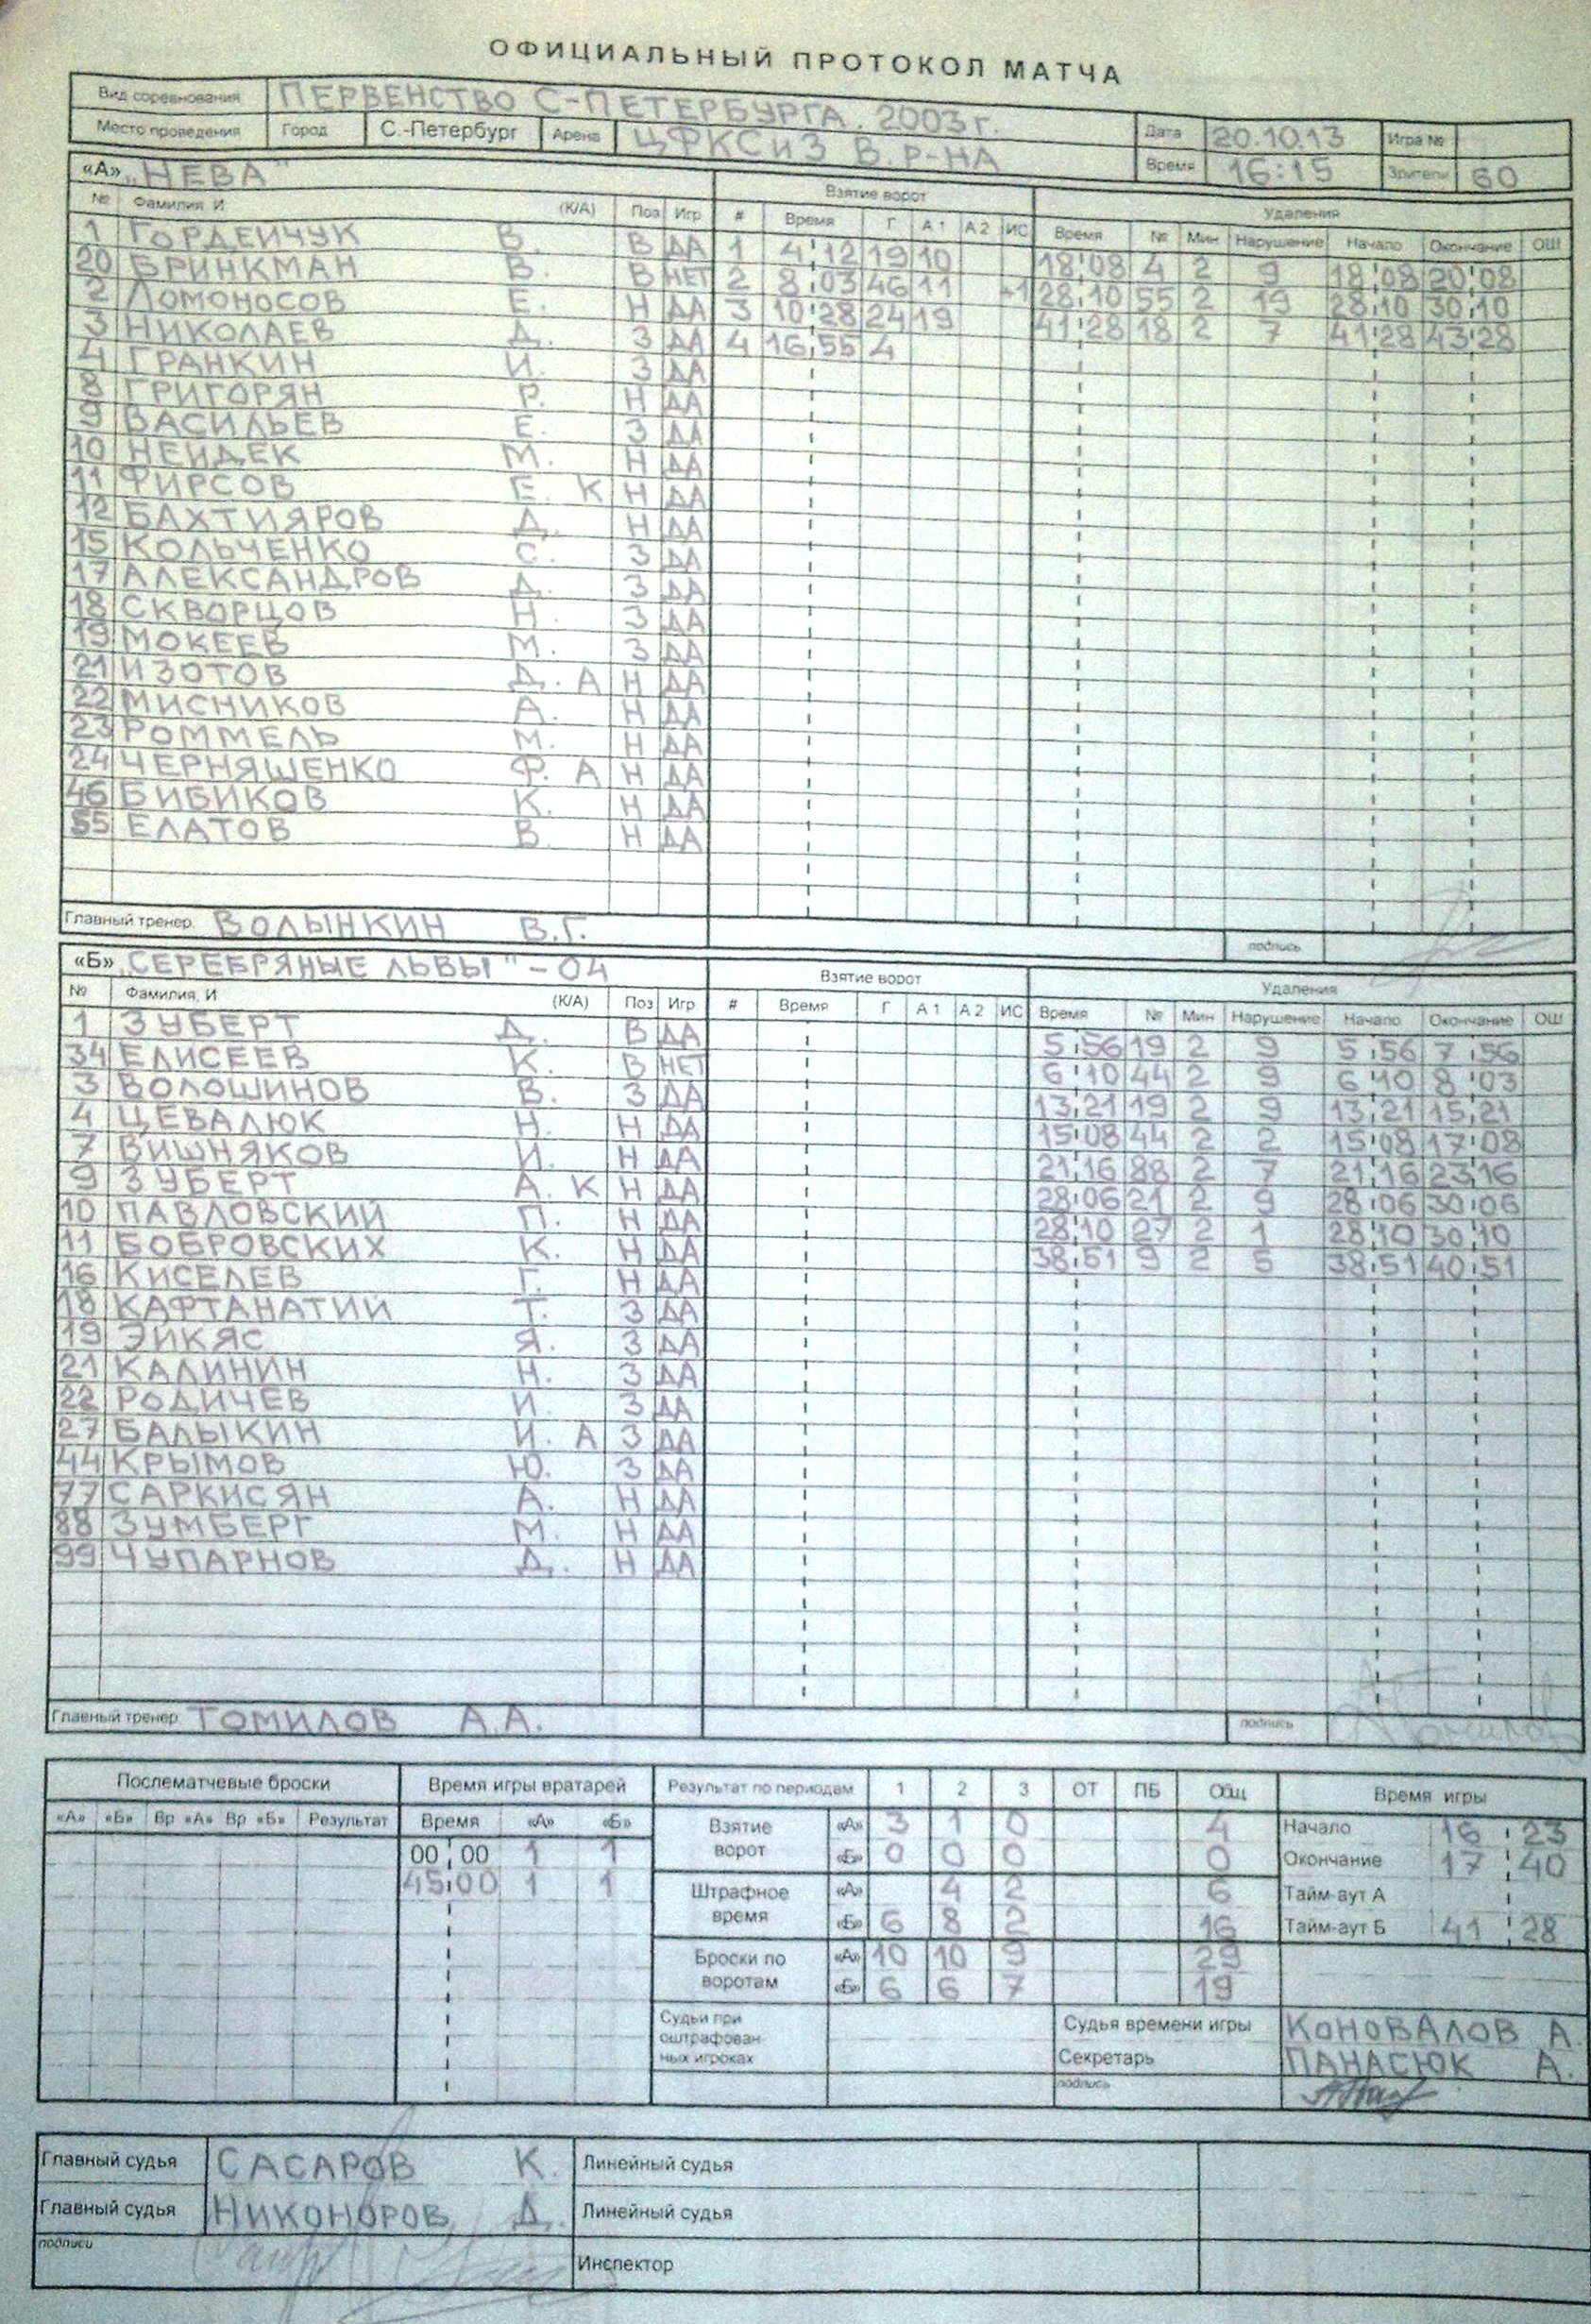 ОФИЦИАЛЬНЫЙ ПРОТОКОЛ МАТЧА
Вид соревнования ПЕРВЕНСТВО С-ПЕТЕРБУРГА. 2003 г. Дата 20.10.13 Игра №
Место проведения Город С.-Петербург Арена ЦФКСиЗ В.Р-НА Время 16:15 Зрители 60
«А» „НЕВА" Взятие ворот Удаления
№ Фамилия, И (К/А) Поз Игр # Время Г А1 А2 ИС Время № Мин Нарушение Начало Окончание ОШ
1 ГОРДЕЙЧУК В. В ДА 1 4:12 19 10 18:08 4 2 9 18:08 20:08
20 БРИНКМАН В. В НЕТ 2 8:03 46 11 +1 28:10 55 2 19 28:10 30:10
2 ЛОМОНОСОВ Е. Н ДА 3 10:28 24 19 41:28 18 2 7 41:28 43:28
3 НИКОЛАЕВ Д. З ДА 4 16:55 4
4 ГРАНКИН И. З ДА
8 ГРИГОРЯН Р. Н ДА
9 ВАСИЛЬЕВ Е. З ДА
10 НЕЙДЕК М. Н ДА
11 ФИРСОВ Е. К Н ДА
12 БАХТИЯРОВ Д. Н ДА
15 КОЛЬЧЕНКО С. З ДА
17 АЛЕКСАНДРОВ Д. З ДА
18 СКВОРЦОВ Н. З ДА
19 МОКЕЕВ М. З ДА
21 ИЗОТОВ Д. А Н ДА
22 МИСНИКОВ А. Н ДА
23 РОММЕЛЬ М. Н ДА
24 ЧЕРНЯШЕНКО Ф. А Н ДА
46 БИБИКОВ К. Н ДА
55 ЕЛАТОВ В. Н ДА
Главный тренер ВОЛЫНКИН В.Г. подпись
«Б» „СЕРЕБРЯНЫЕ ЛЬВЫ" - 04 Взятие ворот Удаления
№ Фамилия, И (К/А) Поз Игр # Время Г А1 А2 ИС Время № Мин Нарушение Начало Окончание ОШ
1 ЗУБЕРТ Д. В ДА 5:56 19 2 9 5:56 7:56
34 ЕЛИСЕЕВ К. В НЕТ 6:10 44 2 9 6:10 8:03
3 ВОЛОШИНОВ В. З ДА 13:21 19 2 9 13:21 15:21
4 ЦЕВАЛЮК Н. Н ДА 15:08 44 2 2 15:08 17:08
7 ВИШНЯКОВ И. Н ДА 21:16 88 2 7 21:16 23:16
9 ЗУБЕРТ А. К Н ДА 28:06 21 2 9 28:06 30:06
10 ПАВЛОВСКИЙ П. Н ДА 28:10 27 2 1 28:10 30:10
11 БОБРОВСКИХ К. Н ДА 38:51 9 2 5 38:51 40:51
16 КИСЕЛЕВ Г. Н ДА
18 КАФТАНАТИЙ Т. З ДА
19 ЭЙКЯС Я. З ДА
21 КАЛИНИН Н. З ДА
22 РОДИЧЕВ И. З ДА
27 БАЛЫКИН И. А З ДА
44 КРЫМОВ Ю. З ДА
77 САРКИСЯН А. Н ДА
88 ЗУМБЕРГ М. Н ДА
99 ЧУПАРНОВ Д. Н ДА
Главный тренер ТОМИЛОВ А.А. подпись
Послематчевые броски Время игры вратарей Результат по периодам 1 2 3 ОТ ПБ Общ Время игры
«А» «Б» Вр «А» Вр «Б» Результат Время «А» «Б» Взятие ворот «А» 3 1 0 4 Начало 16:23
00:00 1 1 «Б» 0 0 0 0 Окончание 17:40
45:00 1 1 Штрафное время «А» 4 2 6 Тайм-аут А
«Б» 6 8 2 16 Тайм-аут Б 41:28
Броски по воротам «А» 10 10 9 29
«Б» 6 6 7 19
Судьи при оштрафован- ных игроках Судья времени игры КОНОВАЛОВ А.
Секретарь ПАНАСЮК А.
подпись
Главный судья САСАРОВ К. Линейный судья
Главный судья НИКОНОРОВ Д. Линейный судья
подписи Инспектор